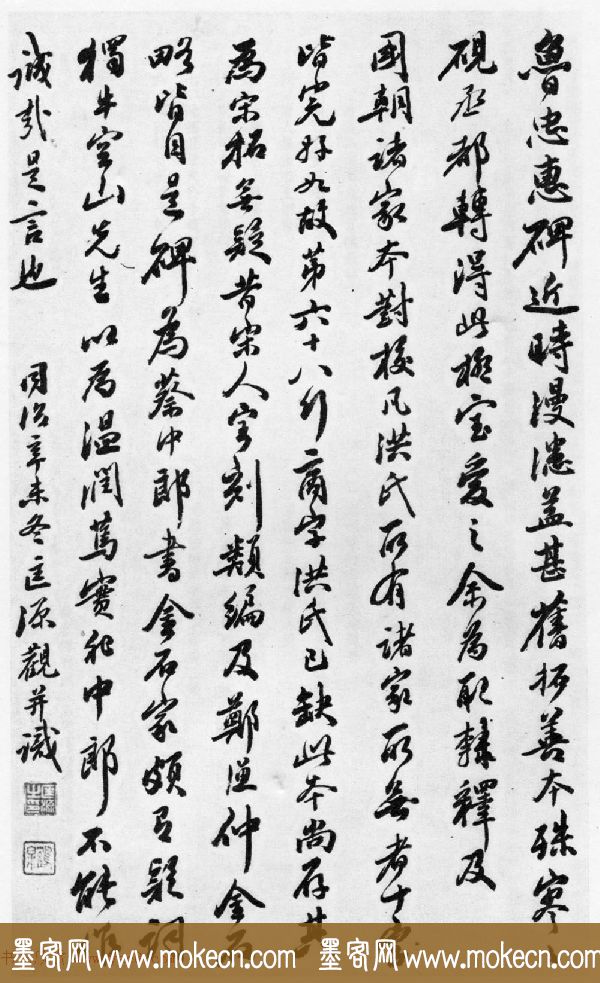 魯忠惠碑近時漫漶益甚舊拓善本殊寥
硯丞都轉得此極寶愛之余為取隸釋及
國朝諸家本對校凡洪氏所有諸家所無者十
皆完好如故第六十八行商字洪氏已缺此本尚存其
為宋拓無疑昔宋人寶刻類編及鄭漁仲金石
略皆目是碑為蔡中郎書金石家頗有疑詞
獨牛空山先生以為溫潤篤實非中郎不能
誠哉是言也
同治辛未冬匡源觀并識
墨客网 www.mokecn.com 墨客网 www.mokecn.com